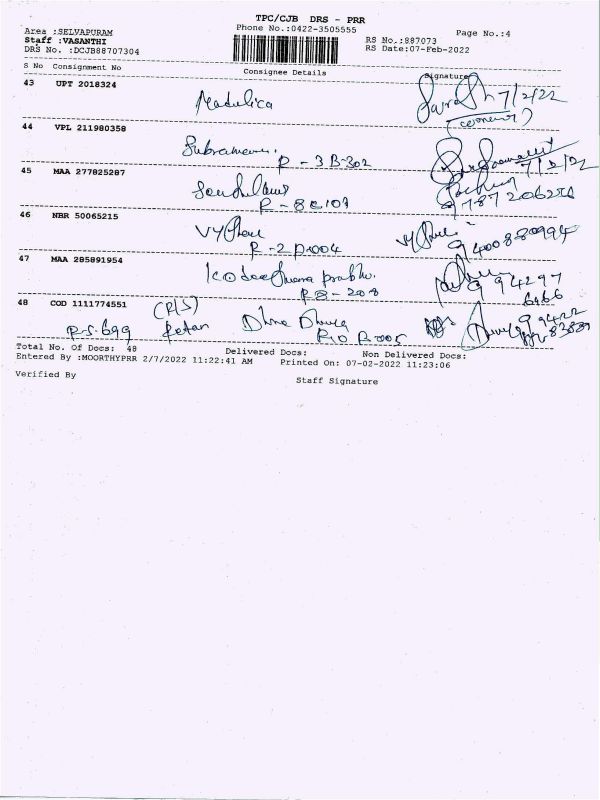 TPC/CJB DRS - PRR
Area :SELVAPURAM Phone No.:0422-3505555 Page No.:4
Staff :VASANTHI RS No.:887073
DRS No. :DCJB88707304 RS Date:07-Feb-2022
S No Consignment No Consignee Details Signature
43 UPT 2018324
Madulica 7/2/22
44 VPL 211980358
Subramani. 7/2/22
R - 3 B-302
45 MAA 277825287
R - 8C109
46 NBR 50065215
R - 2 D1004
47 MAA 285891954
Kodeeswara prabhu. 94297
R8 - 208 6466
48 COD 1111774551 (R/S)
RS. 699 Retan R10
Total No. Of Docs: 48 Delivered Docs: Non Delivered Docs:
Entered By :MOORTHYPRR 2/7/2022 11:22:41 AM Printed On: 07-02-2022 11:23:06
Verified By Staff Signature